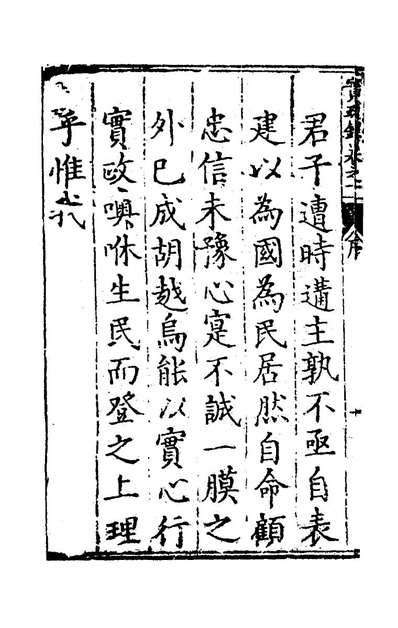 君子遭時遘主孰不亟自表
建以為國為民居然自命顧
忠信未豫心寔不誠一膜之
外已成胡越烏能以實心行
實政噢咻生民而登之上理
乎惟